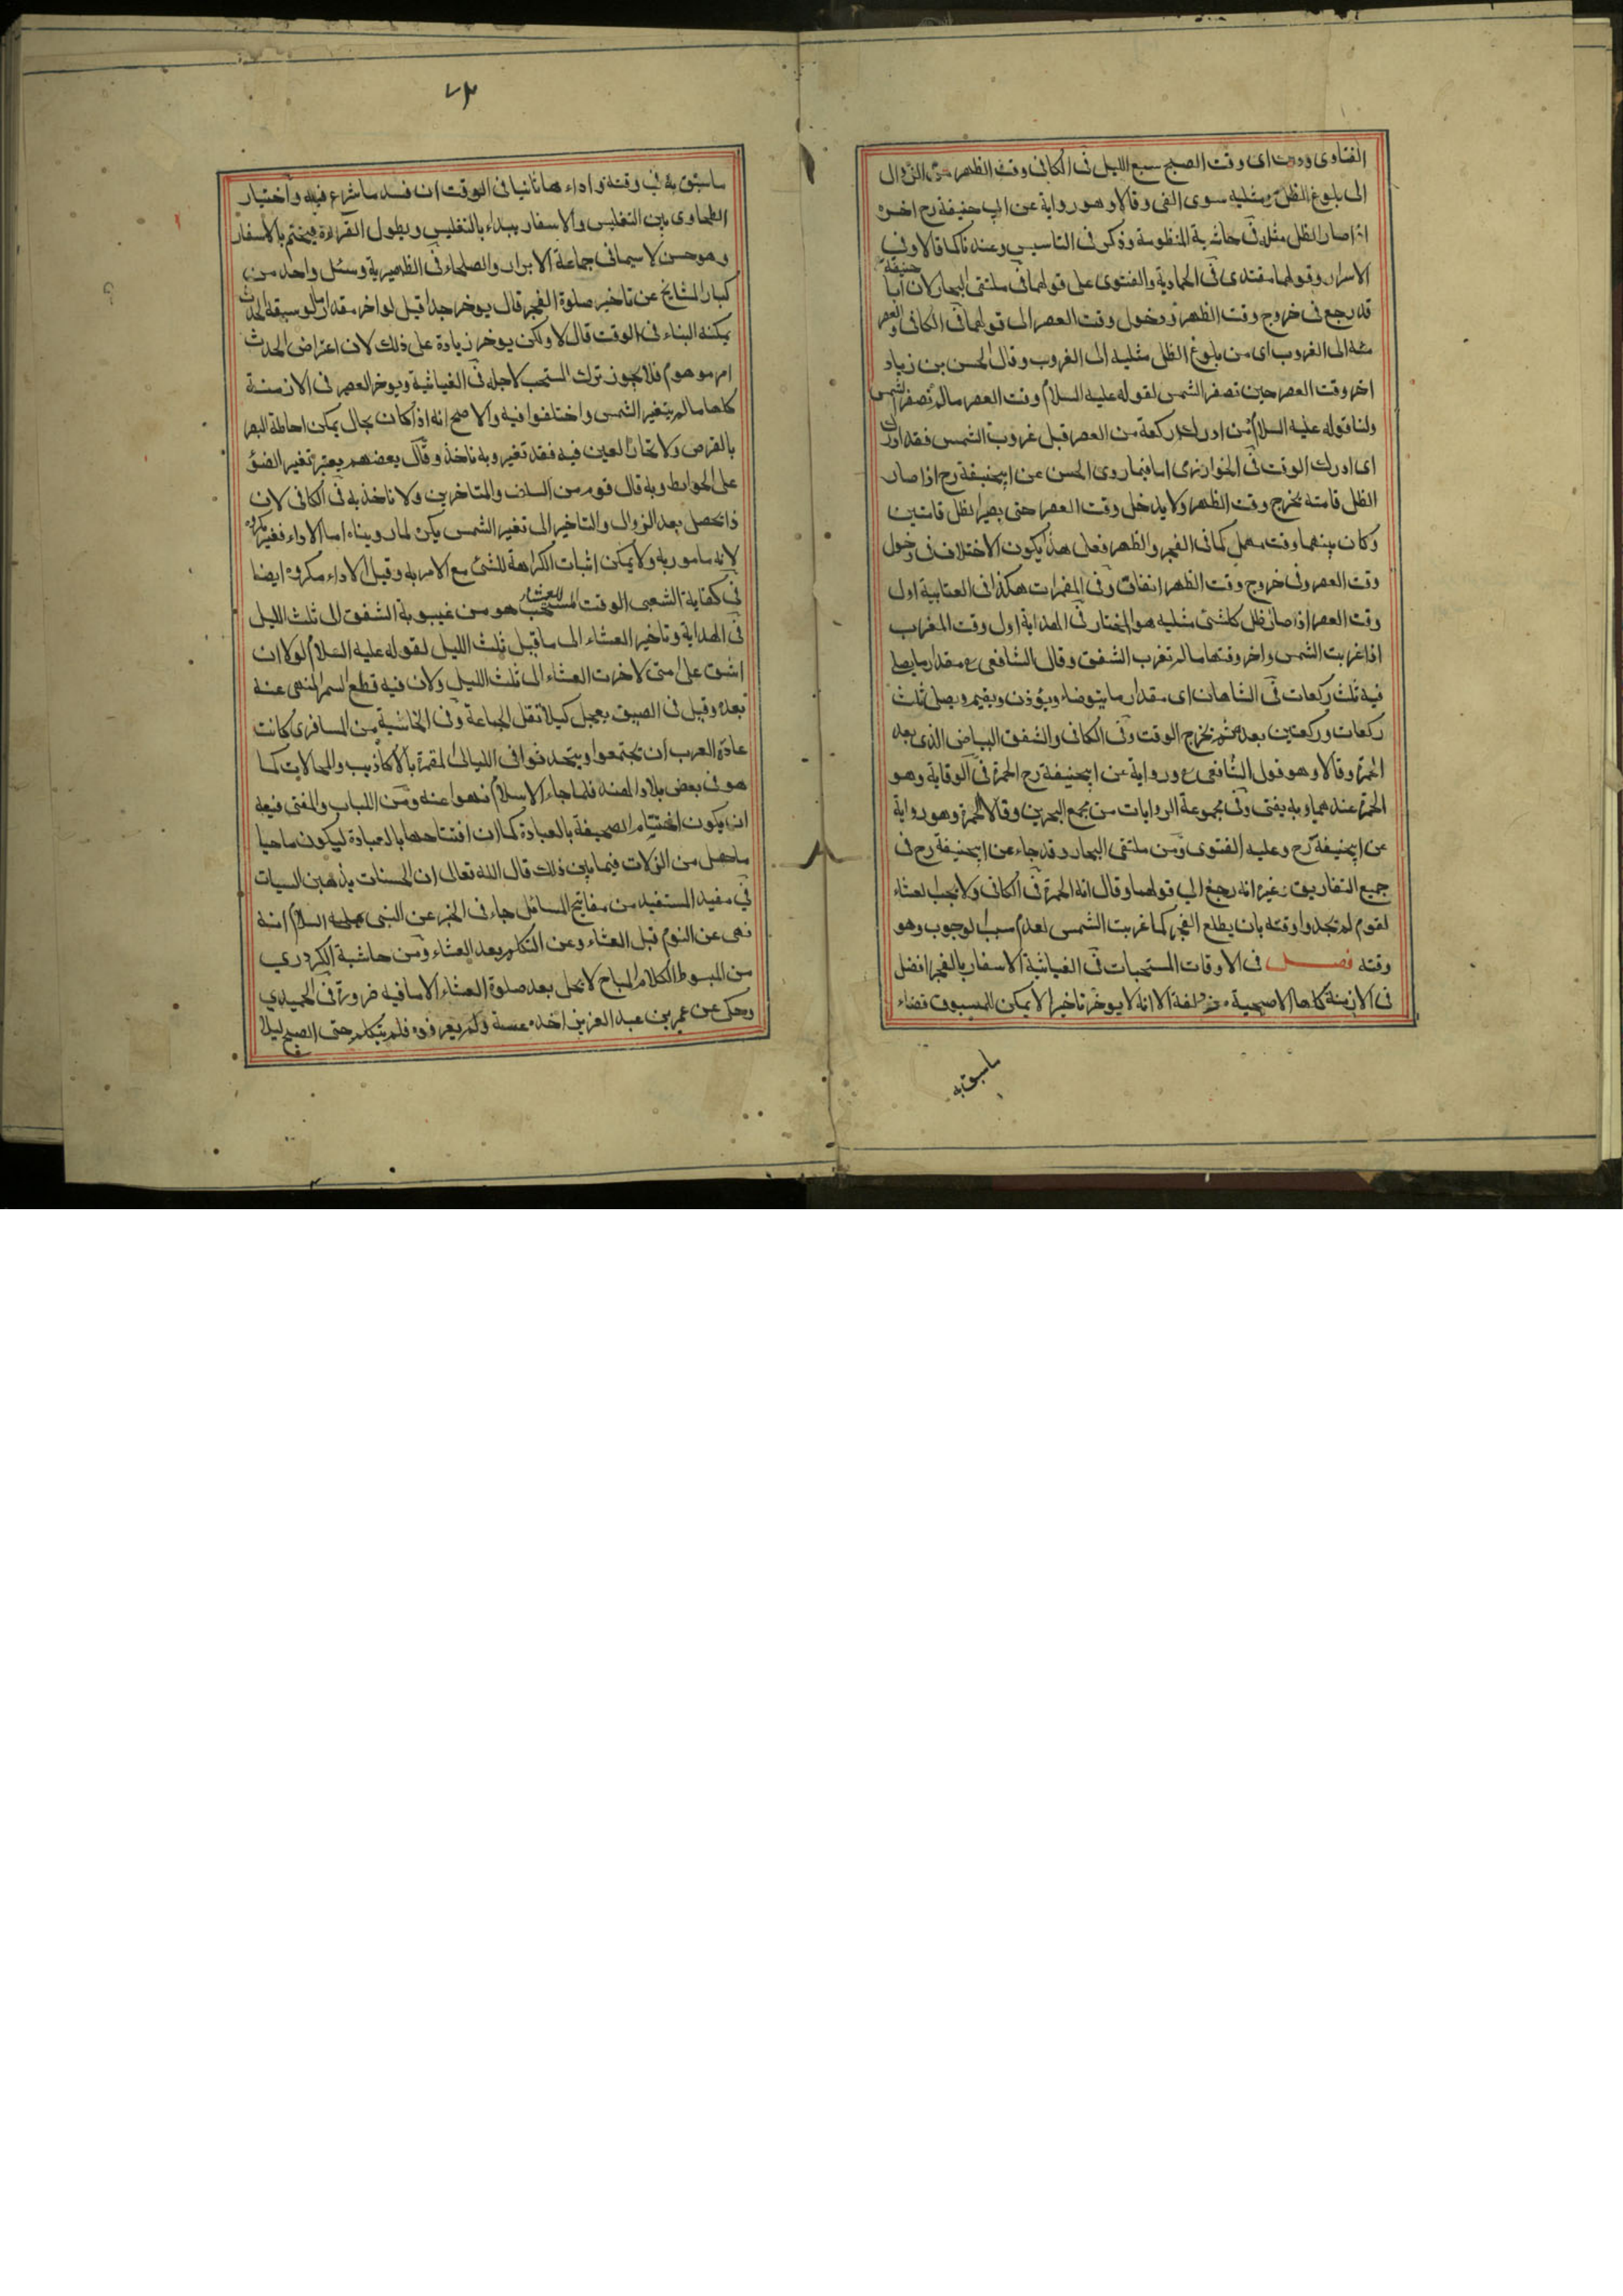 الفتاوى ووقت اى وقت الصبح سبع الليل فى الكافى وقت الظهر من الزوال
الى بلوغ الظل مثليه سوى الفى وقالا وهو رواية عن ابى حنيفة رح اخره
اذا صار الظل مثله فى حاشية المنظومة وذكر فى التاسيس وعند ناكما قالا وفى
الاسرار وقولهما مقتدى فى الحمادية والفتوى على قولهما فى ملتقى البحار لان ابا حنيفة
قد رجع فى خروج وقت الظهر ودخول وقت العصر الى قولهما فى الكافى والعصر
منه الى الغروب اى من بلوغ الظل مثليه الى الغروب وقال الحسن بن زياد
اخر وقت العصر حين تصفر الشمس لقوله عليه السلام وقت العصر مالم تصفر الشمس
ولنا قوله عليه السلام من ادرك ركعة من العصر قبل غروب الشمس فقد ادرك
اى ادرك الوقت فى الخوارزمى اما فيما روى الحسن عن ابيحنيفة رح اذا صار
الظل قامته يخرج وقت الظهر ولا يدخل وقت العصر حتى يصير الظل قامتين
وكان بينهما وقت مهمل كما فى الفجر والظهر فعلى هذا يكون الاختلاف فى دخول
وقت العصر وفى خروج وقت الظهر اتفاق وفى المضمرات هكذا فى العتابية اول
وقت العصر اذا صار ظل كلشئ مثليه هو المختار فى الهداية اول وقت المغرب
اذا غربت الشمس واخر وقتها مالم تغرب الشفق وقال الشافعى ع مقدار ما يصلى
فيه ثلث ركعات فى الشاهان اى مقدار ما يتوضاء ويؤذن ويقيم ويصلى ثلث
ركعات وركعتين بعده ثم يخرج الوقت وفى الكافى والشفق البياض الذى بعد
الحمرة وقالا وهو قول الشافعى ع ورواية عن ابيحنيفة رح الحمرة فى الوقاية وهو
الحمرة عندهما وبه يفتى وفى مجموعة الروايات من مجمع البحرين وقالا الحمرة وهو رواية
عن ابيحنيفة رح وعليه الفتوى ومن ملتقى البحار وقد جاء عن ابيحنيفة رح فى
جميع التفاريق غير انه رجع الى قولهما وقال انه الحمرة فى الكافى ولا يجب العشاء
لقوم لم تجدوا وقته بان يطلع الفجر كما غربت الشمس لعدم سبب الوجوب وهو
وقته فصل فى الاوقات المستحبات فى الغياثية الاسفار بالفجر افضل
فى الازمنة كلها الا صبحية مزدلفة الا انه لا يوخر تاخيرا لا يمكن للمسبوق قضاء
ماسبق به
٧٣
ماسبق به فى وقته واداءها ثانيا فى الوقت ان فسد ما شرع فيه واختيار
الطحاوى بين التغليس والاسفار يبداء بالتغليس ويطول القراءة فيختم بالاسفار
وهو حسن لا سيما فى جماعة الابرار والصلحاء فى الظهيرية وسئل واحد من
كبار المشايخ عن تاخير صلوة الفجر قال يوخر جدا قيل لو اخر مقدار ما لو سبقه الحدث
يمكنه البناء فى الوقت قال لا ولكن يوخر زيادة على ذلك لان اعتراض الحدث
امر موهوم فلا يجوز ترك المستحب لاجله فى الغياثية ويوخر العصر فى الازمنة
كلها مالم يتغير الشمس واختلفوا فيه والاصح انه اذا كان بحال يمكن احاطة البصر
بالقرص ولا تحار العين فيه فقد تغير وبه ناخذ وقال بعضهم يعتبر تغير الضؤ
على الحوايط وبه قال قوم من السلف والمتاخرين ولا ناخذ به فى الكافى لان
ذا يحصل بعد الزوال والتاخير الى تغير الشمس يكره لما روينا اما الاداء فغير مكروه
لانه مامور به ولا يمكن اثبات الكراهة للشئ مع الامر به وقيل الاداء مكروه ايضا
فى كفاية الشعبى الوقت المستحب للعشاء هو من غيبوبة الشفق الى ثلث الليل
فى الهداية وتاخير العشاء الى ما قبل ثلث الليل لقوله عليه السلام لولا ان
اشق على امتى لاخرت العشاء الى ثلث الليل ولان فيه قطع السمر المنهى عنه
بعده وقيل فى الصيف يعجل كيلا تقل الجماعة وفى الخانية من المسافرى كانت
عادة العرب ان تجتمعوا ويتحدثوا فى الليالى المقمرة بالاكاذيب والمحالات كما
هو فى بعض بلاد الهند فلما جاء الاسلام نهوا عنه ومن اللباب والمغنى فيه
ان يكون اختتام الصحيفة بالعبادة كما ان افتتاحها بالعبادة ليكون ماحيا
ما حصل من الزلات فيما بين ذلك قال الله تعالى ان الحسنات يذهبن السيات
فى مفيد المستفيد من مفاتيح المسائل جاء فى الخبر عن النبى عليه السلام انه
نهى عن النوم قبل العشاء وعن التكلم بعد العشاء ومن حاشية الكردرى
من المبسوط الكلام المباح لا يحل بعد صلوة العشاء الا ما فيه ضرورة فى الحميدى
وحكى عن عمر بن عبد العزيز اخذه عسة ولم يعرفوه فلم يتكلم حتى الصبح ليلا